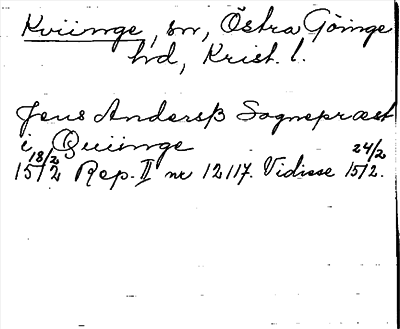 Kviinge, sn, Östra Göinge
hd, Krist. l.
Jens Anderss Sognepræst
i Quiinge
18/2 24/2
1512 Rep. II nr 12117. Vidisse 1512.